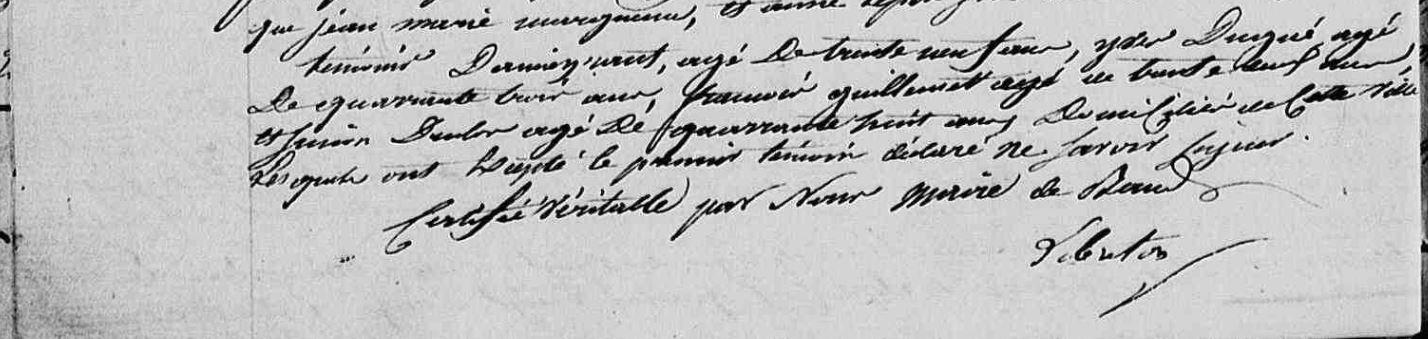 que jean marie et anne
témoins agé De trente neuf ans, yves Dugué agé
De quarrante trois ans, françois guillemet agé de trente neuf ans
et agé De quarrante huit ans Domiciliés de Cette Ville
Lesquels ont Excepté le premier témoin déclaré ne savoir signer.
Certifié Véritable par Nous Maire de Baud
Lebreton